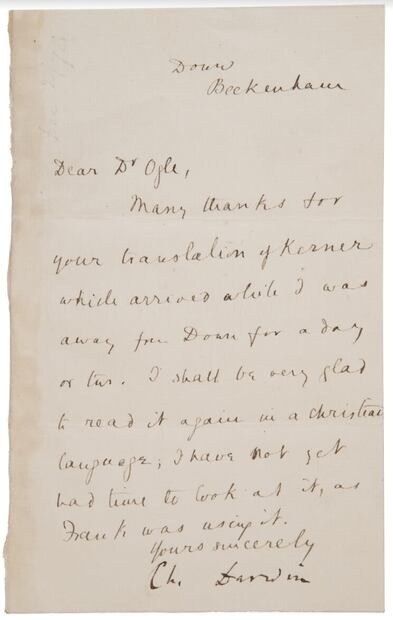 Down
Beckenham
Dear Dr Ogle,
Many thanks for
your translation of Kerner
which arrived while I was
away from Down for a day
or two. I shall be very glad
to read it again in a christian
language; I have not yet
had time to look at it, as
Frank was using it.
Yours sincerely
Ch. Darwin